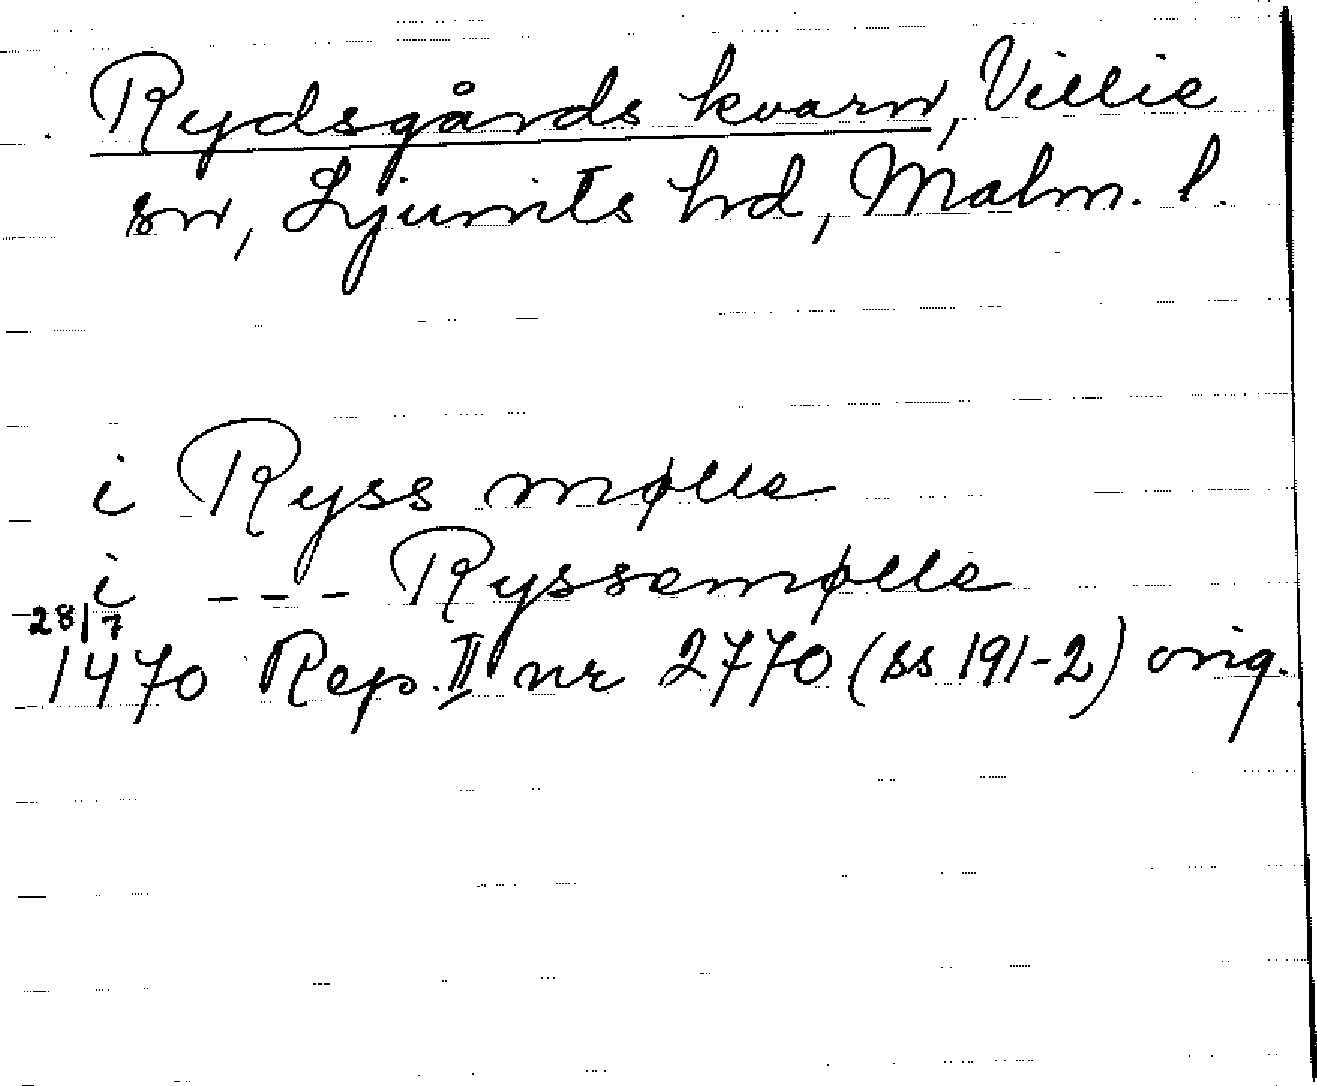 Rydsgårds kvarn, Villie
sn, Ljunits hd, Malm. l.
i Ryss mølle
i --- Ryssemølle
28/7
1470 Rep. II nr 2770 (ss 191-2) orig.